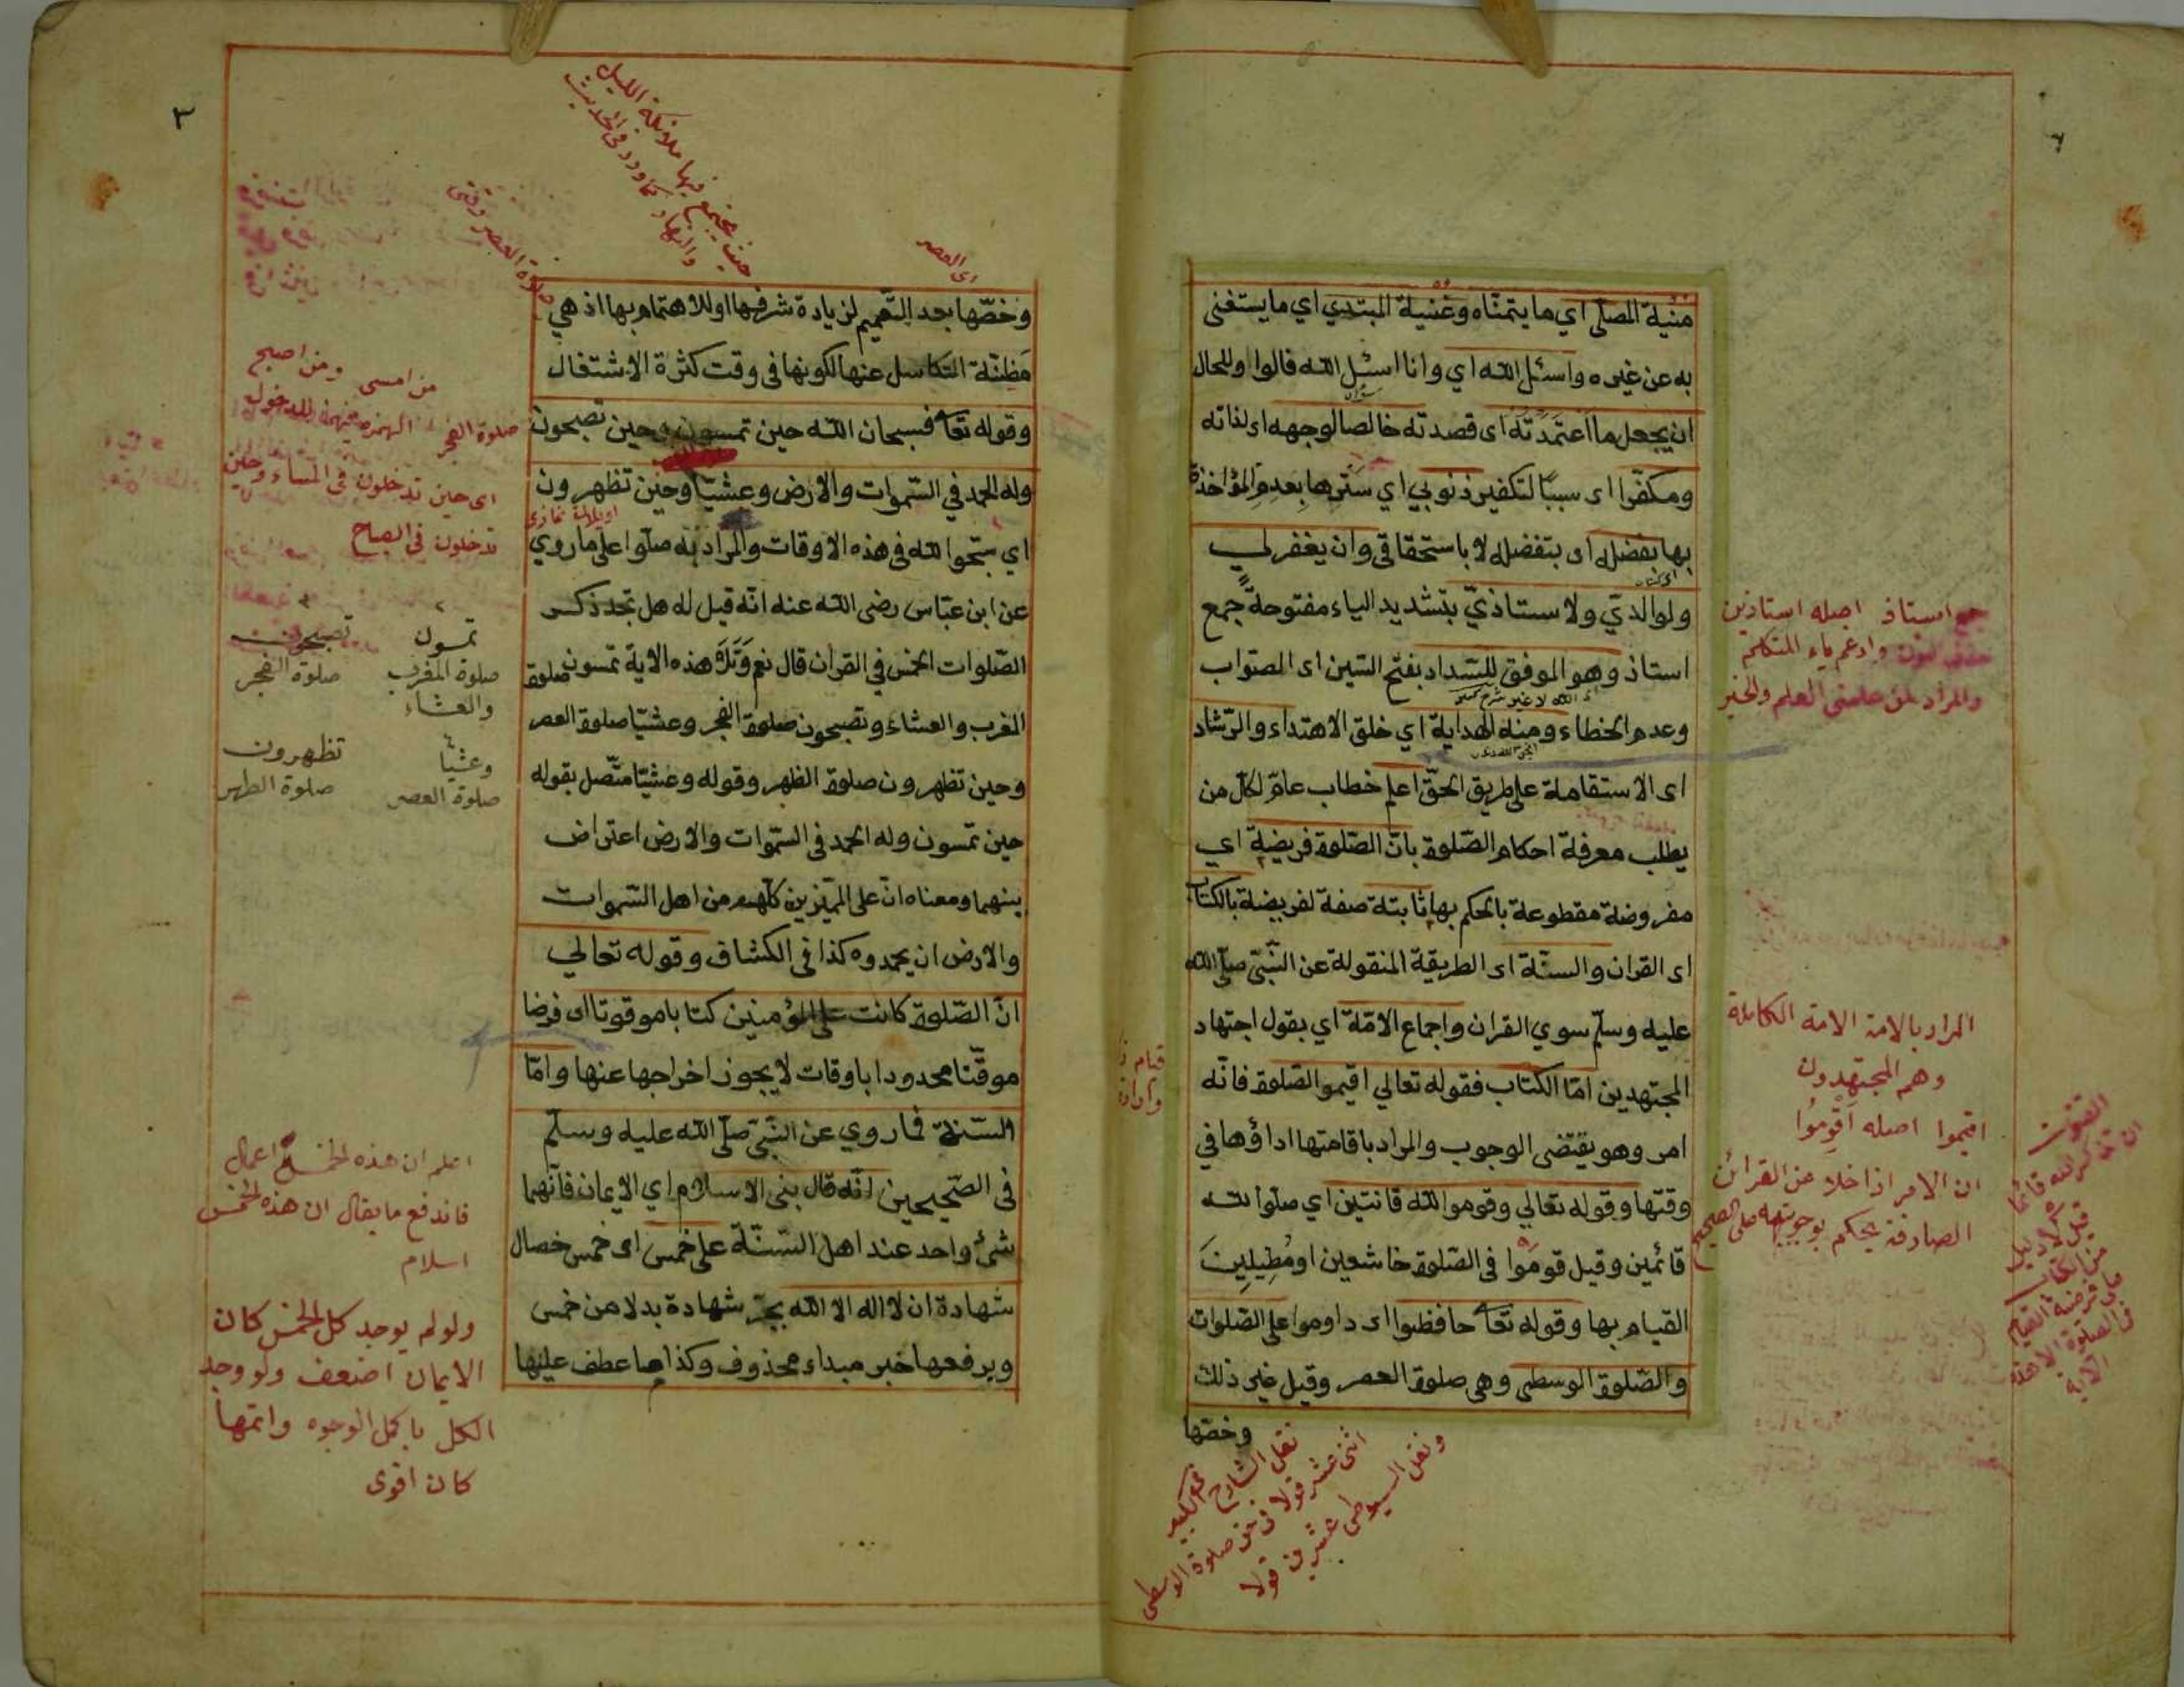 منية المصلّي اي ما يتمنّاه وغنية المبتدي اي ما يستغنى
به عن غيره واسئل الله اي وانا اسئل الله فالوا وللحال
ان يجعل ما اعتمدته اى قصدته خالصا لوجهه اى لذاته
ومكفّرا اى سببًا لتكفير ذنوبي اي سترها بعدم المؤاخذة
بها بفضله اى بتفضله لا باستحقاقي وان يغفر لي
ولوالديّ ولاستاذيّ بتشديد الياء مفتوحة جمع
استاذ وهو الموفق للسّداد بفتح السّين اى الصّواب
وعدم الخطاء ومنه الهداية اي خلق الاهتداء والرّشاد
اى الاستقامة على طريق الحقّ اعلم خطاب عامّ لكلّ من
يطلب معرفة احكام الصّلوة بانّ الصّلوة فريضة اي
مفروضة مقطوعة بالحكم بها ثابتة صفة لفريضة بالكتاب
اى القران والسنّة اى الطريقة المنقولة عن النّبيّ صلّى الله
عليه وسلّم سوي القران واجماع الامّة اي بقول اجتهاد
المجتهدين امّا الكتاب فقوله تعالي اقيموا الصّلوة فانّه
امر وهو يقتضى الوجوب والمراد باقامتها اداؤها في
وقتها وقوله تعالي وقوموا لله قانتين اي صلّوا لله
قائمين وقيل قوموا فى الصّلوة خاشعين او مُطِيلِينَ
القيام بها وقوله تعا حافظوا اى داوموا على الصّلوات
والصّلوة الوسطى وهي صلوة العصر وقيل غير ذلك
وخصّها
جمع استاذ اصله استاذين
وادغم ياء المتكلم
المراد بالامة الامة الكاملة
وهم المجتهدون
اقيموا اصله اَقْوِمُوا
ان الامر اذا خلا من القرائن
الصارفة يحكم بوجوبه على الصحيح
نقل الشارح فى الكبير
اثنى عشر قولا فى صلوة الوسطى
ونقل السيوطى عشرين قولا
٣
حيث يجتمع فيها ملائكة الليل
والنهار كما ورد فى الحديث
اى العصر
وخصّها بعد التّعميم لزيادة شرفها او للاهتمام بها اذ هي
مَظِنّة التكاسل عنها لكونها فى وقت كثرة الاشتغال
وقوله تعا فسبحان الله حين تمسون وحين تصبحون
وله الحمد في السّموات والارض وعشيّا وحين تظهرون
اي سبّحوا لله فى هذه الاوقات والمراد به صلّوا على ما روي
عن ابن عبّاس رضى الله عنه انّه قيل له هل تجد ذكر
الصّلوات الخمس في القران قال نعم وتلا هذه الاية تمسون صلوة
المغرب والعشاء وتصبحون صلوة الفجر وعشيّا صلوة العصر
وحين تظهرون صلوة الظهر وقوله وعشيّا متّصل بقوله
حين تمسون وله الحمد فى السّموات والارض اعتراض
بينهما ومعناه انّ على المميّزين كلّهم من اهل السّموات
والارض ان يحمدوه كذا فى الكشاف وقوله تعالي
انّ الصّلوة كانت على المؤمنين كتابا موقوتا اى فرضا
موقّتا محدودا باوقات لا يجوز اخراجها عنها وامّا
السّنة فما روي عن النّبيّ صلّى الله عليه وسلّم
فى الصّحيحين انّه قال بنى الاسلام اي الايمان فانّهما
شئ واحد عند اهل السّنّة على خمس اى خمس خصال
شهادة ان لا اله الا الله بجرّ شهادة بدلا من خمس
ويرفعها خبر مبداء محذوف وكذا ما عطف عليها
من امسى ومن اصبح
صلوة الفجر الهمزة فيهما للدخول
اى حين تدخلون فى المساء وحين
تدخلون فى الصباح
تمسون تصبحون
صلوة المغرب صلوة الفجر
والعشاء
وعشيّا تظهرون
صلوة العصر صلوة الظهر
اعلم ان هذه الخمس اعمال
فاندفع ما يقال ان هذه الخمس
اسلام
ولو لم يوجد كل الخمس كان
الايمان اضعف ولو وجد
الكل باكمل الوجوه واتمها
كان اقوى